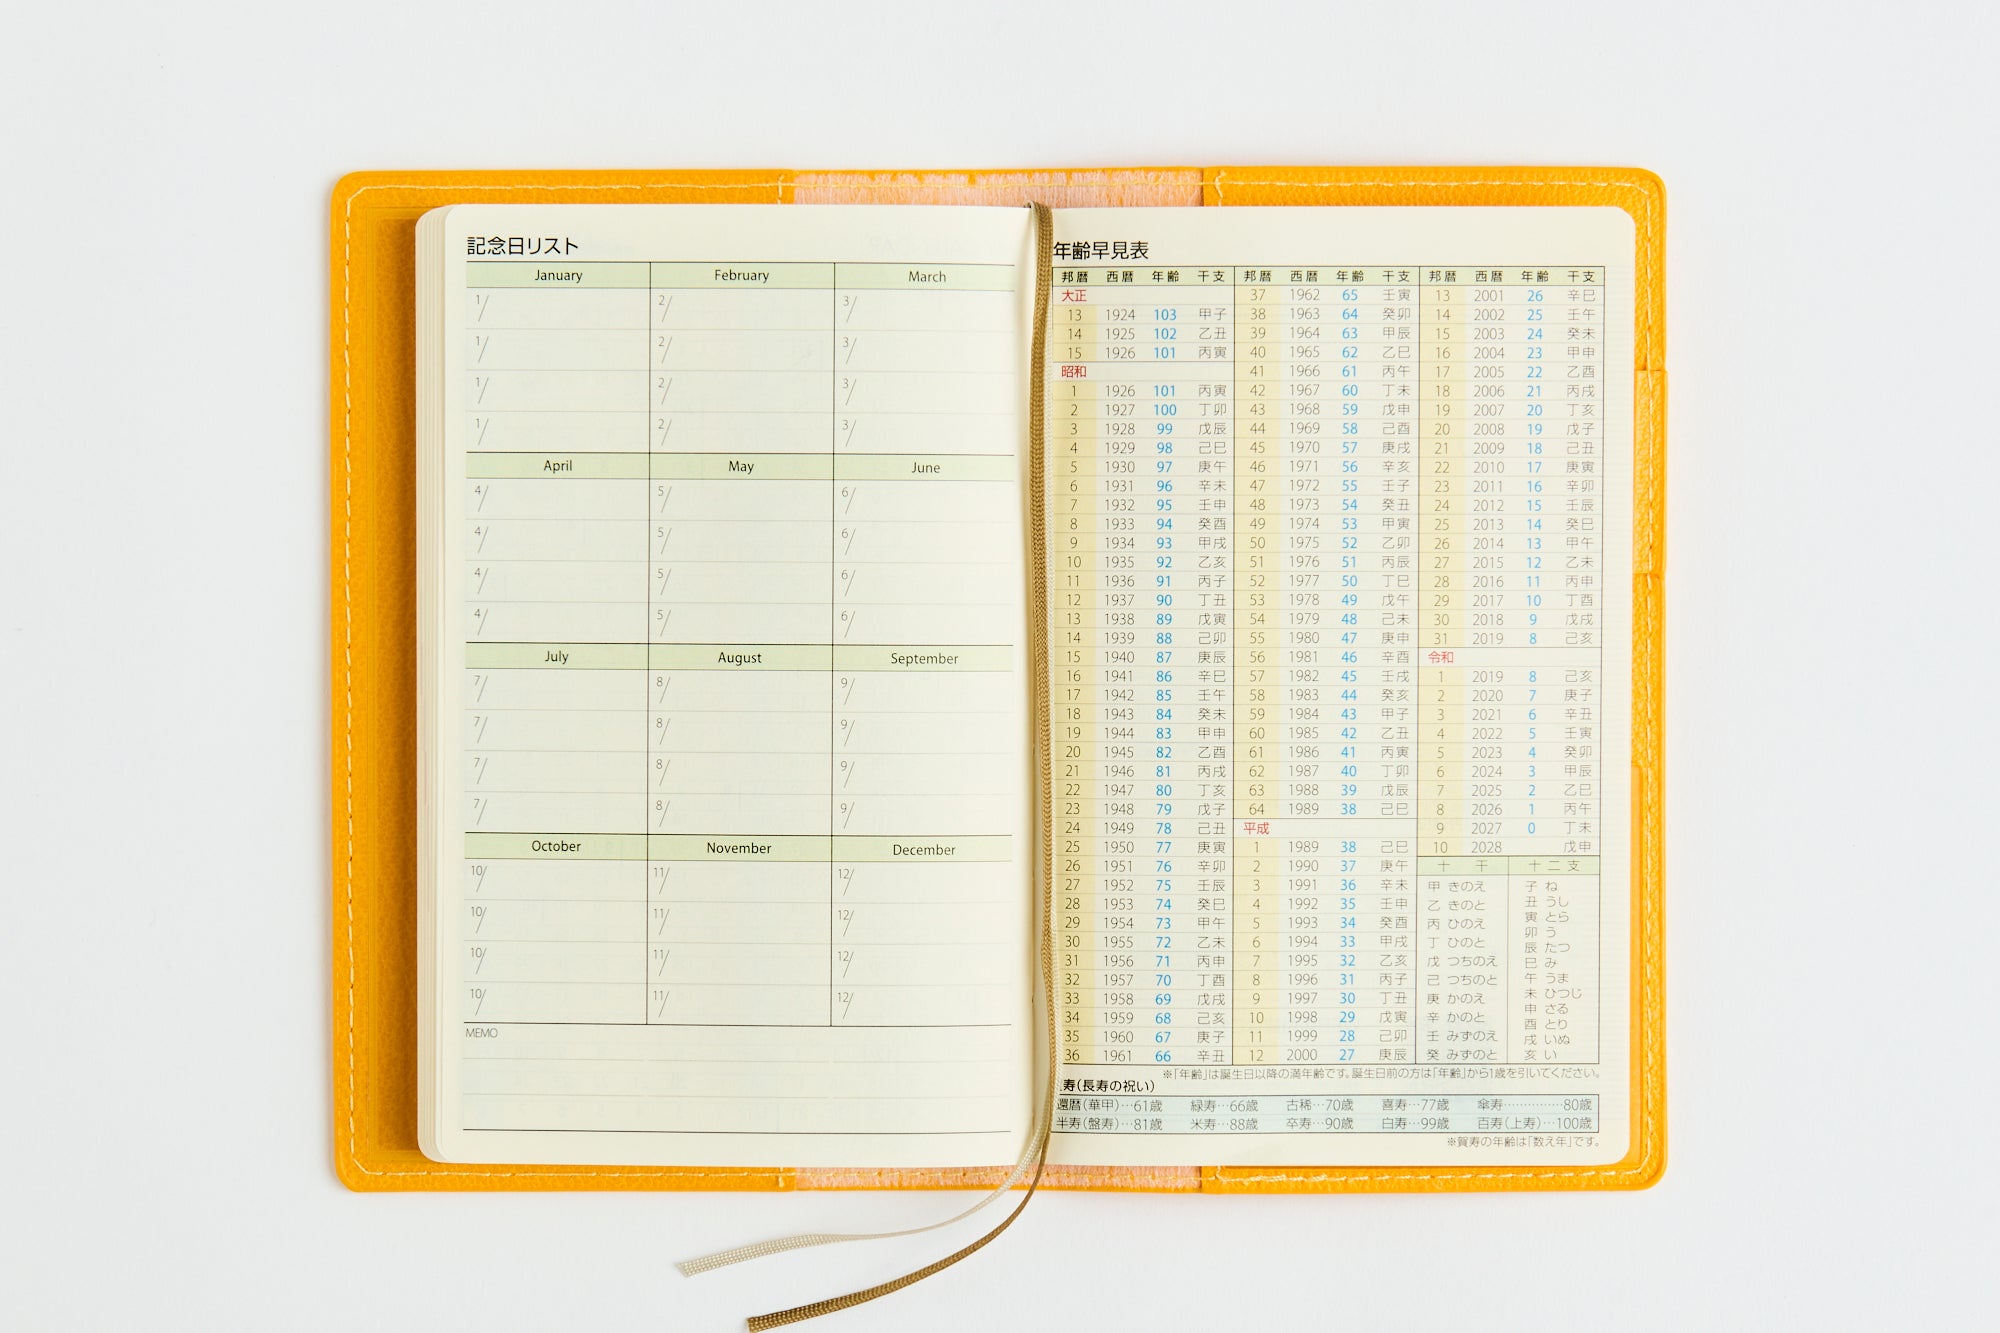 記念日リスト
January February March
1/ 2/ 3/
1/ 2/ 3/
1/ 2/ 3/
1/ 2/ 3/
April May June
4/ 5/ 6/
4/ 5/ 6/
4/ 5/ 6/
4/ 5/ 6/
July August September
7/ 8/ 9/
7/ 8/ 9/
7/ 8/ 9/
7/ 8/ 9/
October November December
10/ 11/ 12/
10/ 11/ 12/
10/ 11/ 12/
10/ 11/ 12/
MEMO
年齢早見表
邦暦 西暦 年齢 干支
大正
13 1924 103 甲子
14 1925 102 乙丑
15 1926 101 丙寅
昭和
1 1926 101 丙寅
2 1927 100 丁卯
3 1928 99 戊辰
4 1929 98 己巳
5 1930 97 庚午
6 1931 96 辛未
7 1932 95 壬申
8 1933 94 癸酉
9 1934 93 甲戌
10 1935 92 乙亥
11 1936 91 丙子
12 1937 90 丁丑
13 1938 89 戊寅
14 1939 88 己卯
15 1940 87 庚辰
16 1941 86 辛巳
17 1942 85 壬午
18 1943 84 癸未
19 1944 83 甲申
20 1945 82 乙酉
21 1946 81 丙戌
22 1947 80 丁亥
23 1948 79 戊子
24 1949 78 己丑
25 1950 77 庚寅
26 1951 76 辛卯
27 1952 75 壬辰
28 1953 74 癸巳
29 1954 73 甲午
30 1955 72 乙未
31 1956 71 丙申
32 1957 70 丁酉
33 1958 69 戊戌
34 1959 68 己亥
35 1960 67 庚子
36 1961 66 辛丑
邦暦 西暦 年齢 干支
37 1962 65 壬寅
38 1963 64 癸卯
39 1964 63 甲辰
40 1965 62 乙巳
41 1966 61 丙午
42 1967 60 丁未
43 1968 59 戊申
44 1969 58 己酉
45 1970 57 庚戌
46 1971 56 辛亥
47 1972 55 壬子
48 1973 54 癸丑
49 1974 53 甲寅
50 1975 52 乙卯
51 1976 51 丙辰
52 1977 50 丁巳
53 1978 49 戊午
54 1979 48 己未
55 1980 47 庚申
56 1981 46 辛酉
57 1982 45 壬戌
58 1983 44 癸亥
59 1984 43 甲子
60 1985 42 乙丑
61 1986 41 丙寅
62 1987 40 丁卯
63 1988 39 戊辰
64 1989 38 己巳
平成
1 1989 38 己巳
2 1990 37 庚午
3 1991 36 辛未
4 1992 35 壬申
5 1993 34 癸酉
6 1994 33 甲戌
7 1995 32 乙亥
8 1996 31 丙子
9 1997 30 丁丑
10 1998 29 戊寅
11 1999 28 己卯
12 2000 27 庚辰
邦暦 西暦 年齢 干支
13 2001 26 辛巳
14 2002 25 壬午
15 2003 24 癸未
16 2004 23 甲申
17 2005 22 乙酉
18 2006 21 丙戌
19 2007 20 丁亥
20 2008 19 戊子
21 2009 18 己丑
22 2010 17 庚寅
23 2011 16 辛卯
24 2012 15 壬辰
25 2013 14 癸巳
26 2014 13 甲午
27 2015 12 乙未
28 2016 11 丙申
29 2017 10 丁酉
30 2018 9 戊戌
31 2019 8 己亥
令和
1 2019 8 己亥
2 2020 7 庚子
3 2021 6 辛丑
4 2022 5 壬寅
5 2023 4 癸卯
6 2024 3 甲辰
7 2025 2 乙巳
8 2026 1 丙午
9 2027 0 丁未
10 2028 戊申
十干
甲 きのえ
乙 きのと
丙 ひのえ
丁 ひのと
戊 つちのえ
己 つちのと
庚 かのえ
辛 かのと
壬 みずのえ
癸 みずのと
十二支
子 ね
丑 うし
寅 とら
卯 う
辰 たつ
巳 み
午 うま
未 ひつじ
申 さる
酉 とり
戌 いぬ
亥 い
※「年齢」は誕生日以降の満年齢です。誕生日前の方は「年齢」から1歳を引いてください。
寿(長寿の祝い)
還暦(華甲)…61歳 緑寿…66歳 古稀…70歳 喜寿…77歳 傘寿…………80歳
半寿(盤寿)…81歳 米寿…88歳 卒寿…90歳 白寿…99歳 百寿(上寿)…100歳
※賀寿の年齢は「数え年」です。